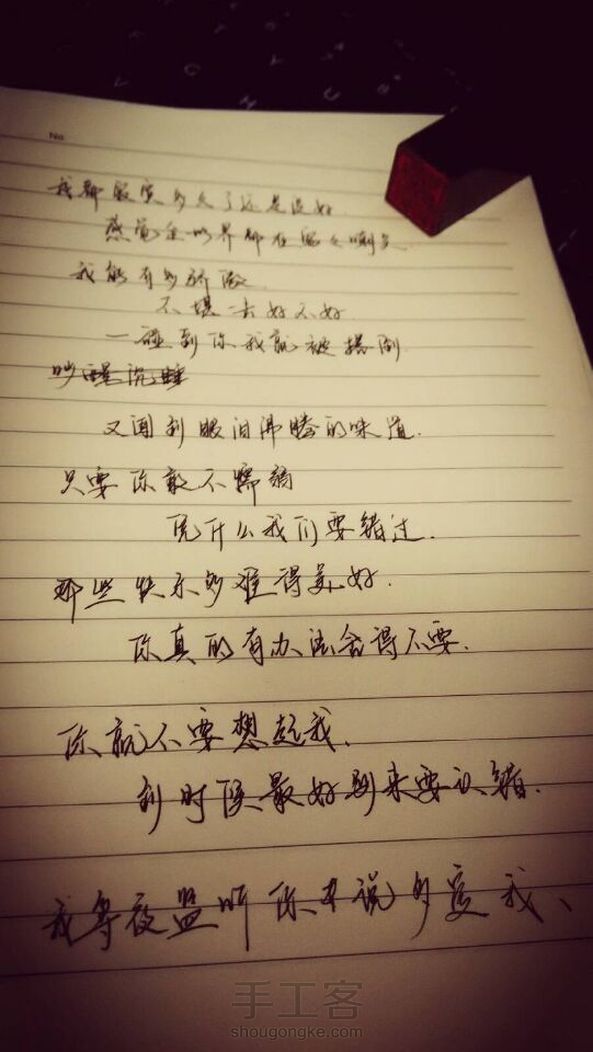 No.
我都寂寞多久了还是没好.
感觉全世界都在窃窃嘲笑
我能有多骄傲.
不堪一击好不好.
一碰到你我就被撂倒
吵醒沉睡
又闻到眼泪沸腾的味道.
只要你敢不懦弱
凭什么我们要错过.
那些快乐多难得美好.
你真的有办法舍得不要.
你就不要想起我.
到时候最好别来要认错.
我等夜 听你 说多爱我、
手工客
shougongke.com